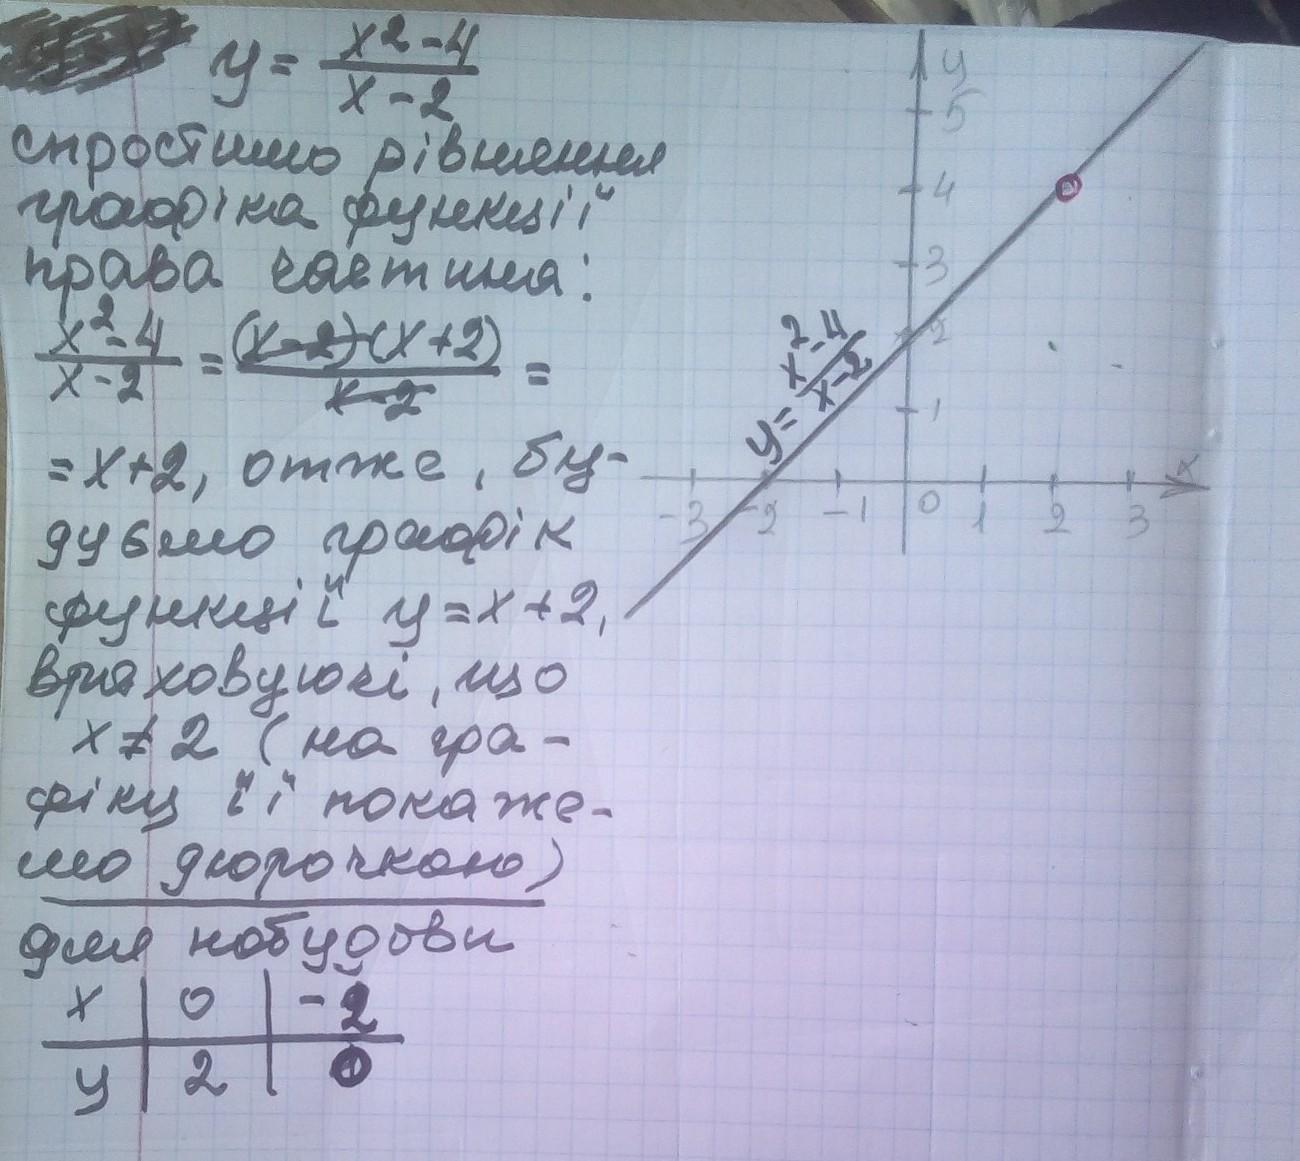 y = (x² - 4)/(x - 2)
спростимо рівняння
графіка функції
права частина:
(x² - 4)/(x - 2) = ((x - 2)(x + 2))/(x - 2) =
= x + 2, отже, бу-
дуємо графік
функції y = x + 2,
враховуючі, що
x ≠ 2 (на гра-
фіку її покаже-
мо дюрочкою)
для побудови
x | 0 | -2
y | 2 | 0
y
5
4
3
2
1
y = (x² - 4)/(x - 2)
-3 -2 -1 0 1 2 3 x